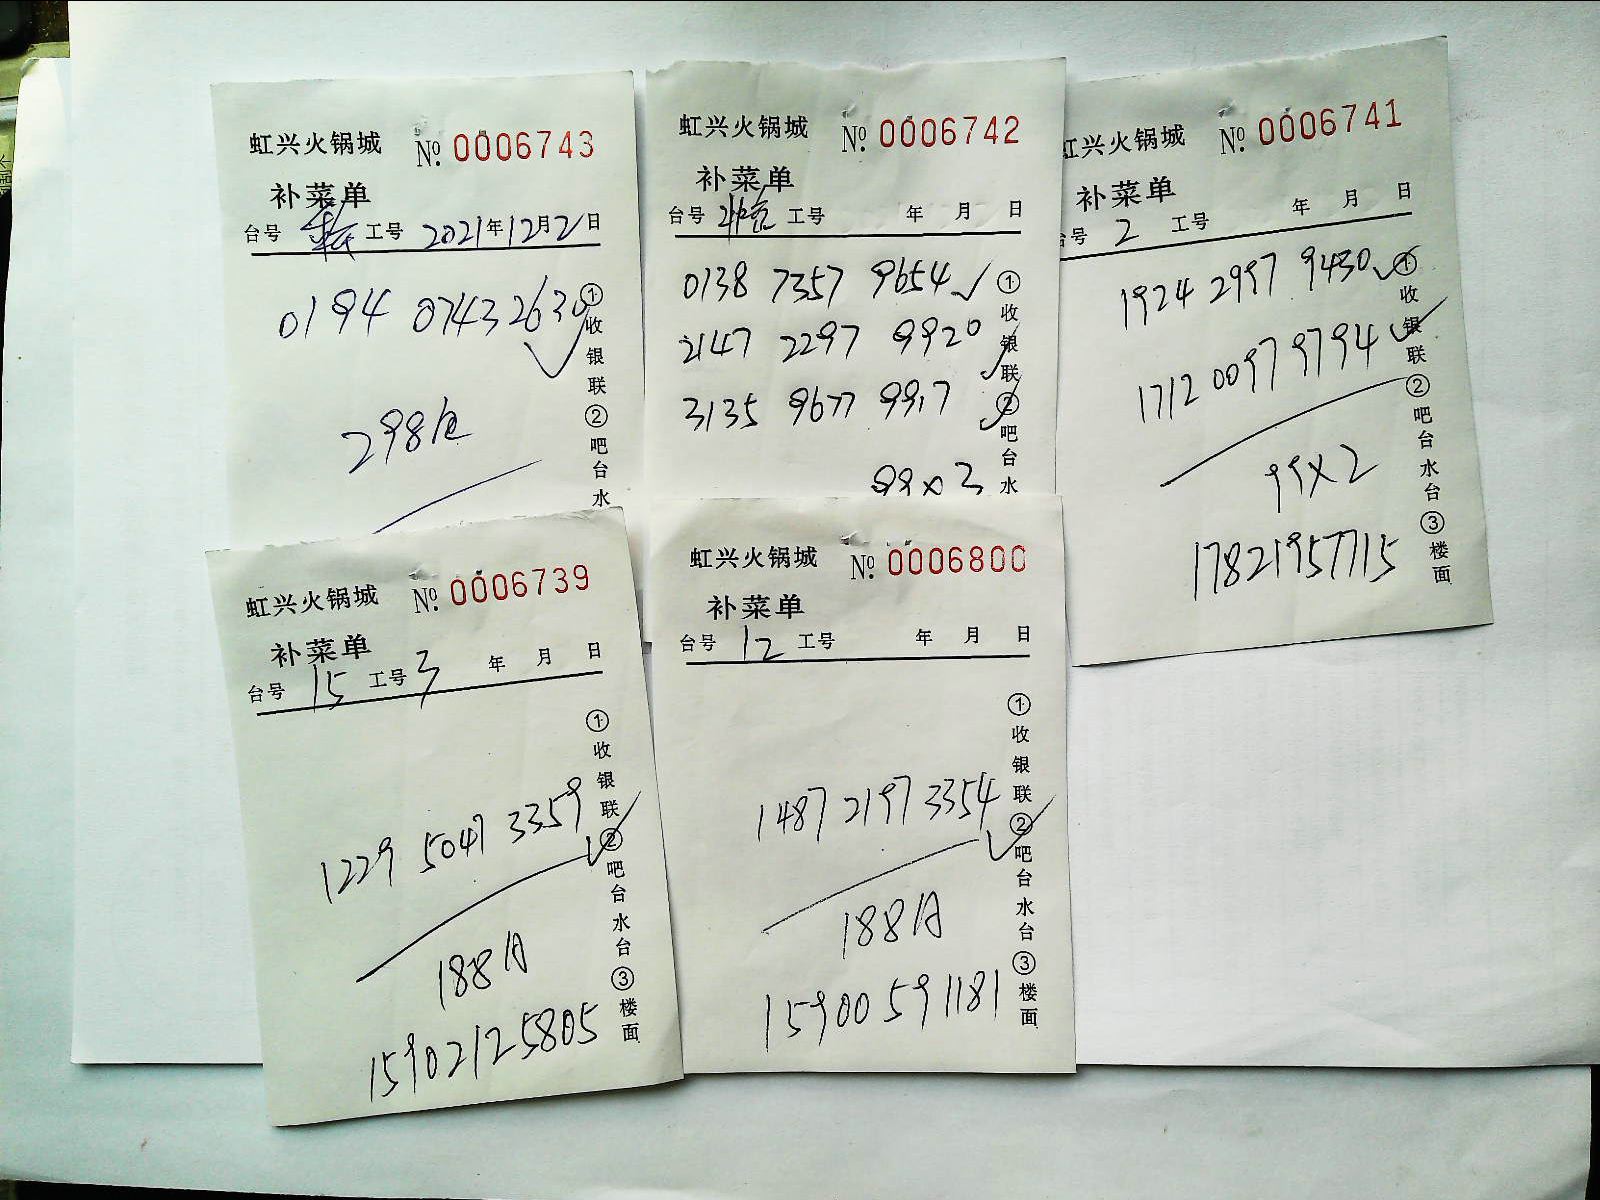 虹兴火锅城 No. 0006743
补菜单
台号 工号 2021年12月2日
0194 0743 2630
298
①收银联②吧台水
虹兴火锅城 No. 0006742
补菜单
台号 工号 年 月 日
0138 7357 9654
2147 2297 9920
3135 9677 9917
99x3
①收银联②吧台水
虹兴火锅城 No. 0006741
补菜单
台号 2 工号 年 月 日
1924 2997 9430
1712 0097 9794
99x2
17821957715
①收银联②吧台水台③楼面
虹兴火锅城 No. 0006739
补菜单
台号 15 工号 3 年 月 日
1229 5047 3359
188A
15902125805
①收银联②吧台水台③楼面
虹兴火锅城 No. 0006800
补菜单
台号 12 工号 年 月 日
1487 2197 3354
188A
15900591181
①收银联②吧台水台③楼面